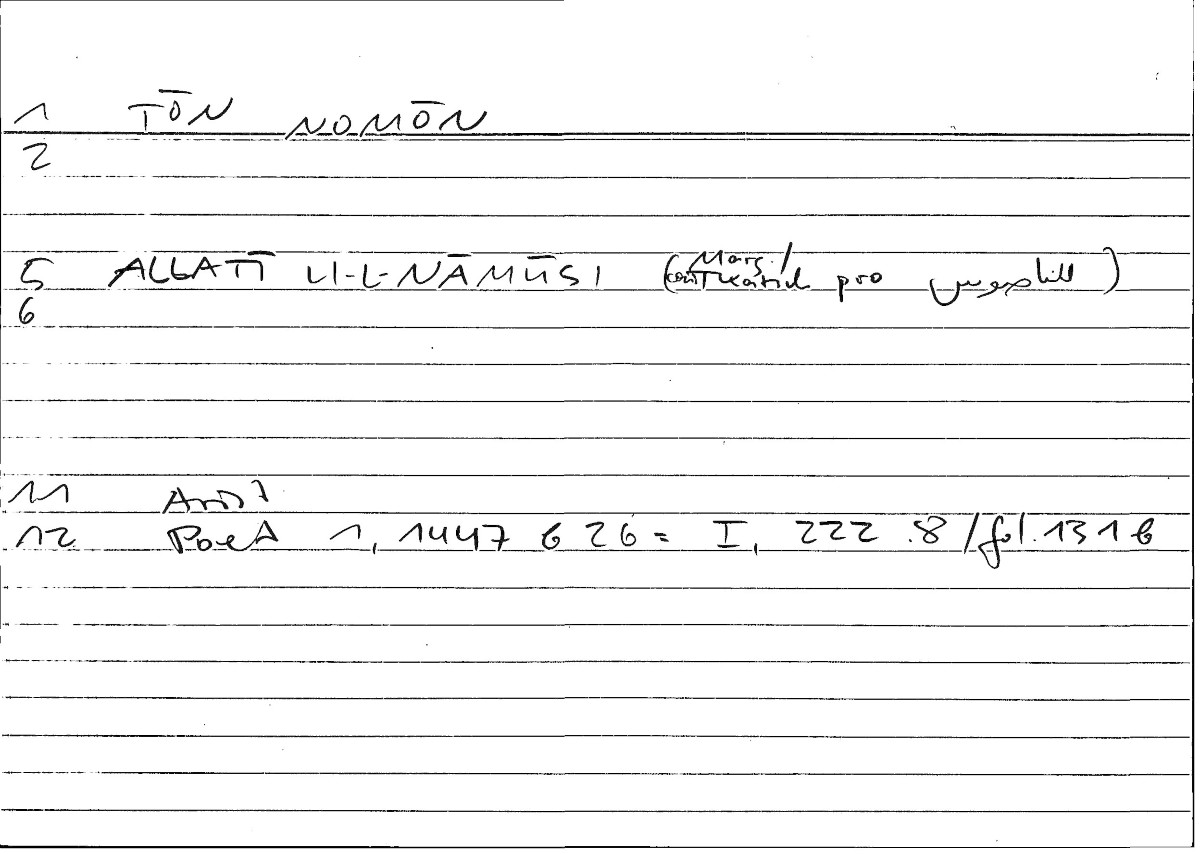 1 TŌN NOMŌN
2
5 ALLATĪ LI-L-NĀMŪSI (Marg./ coni Tkatsch pro للناصوس)
6
11 Arist
12 PoetA 1, 1447 b 26 = I, 222.8/fol.131b